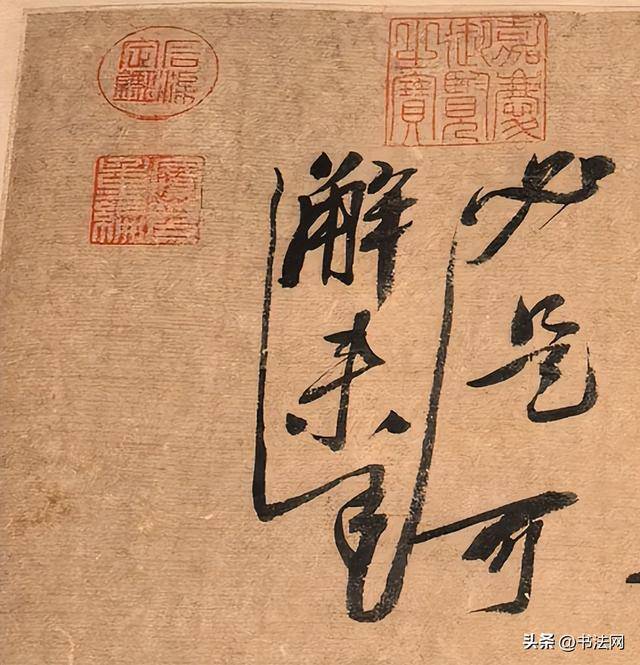 嘉慶御覽之寶
必是可
解未
石渠定鑑
寶笈重編
头条 @书法网